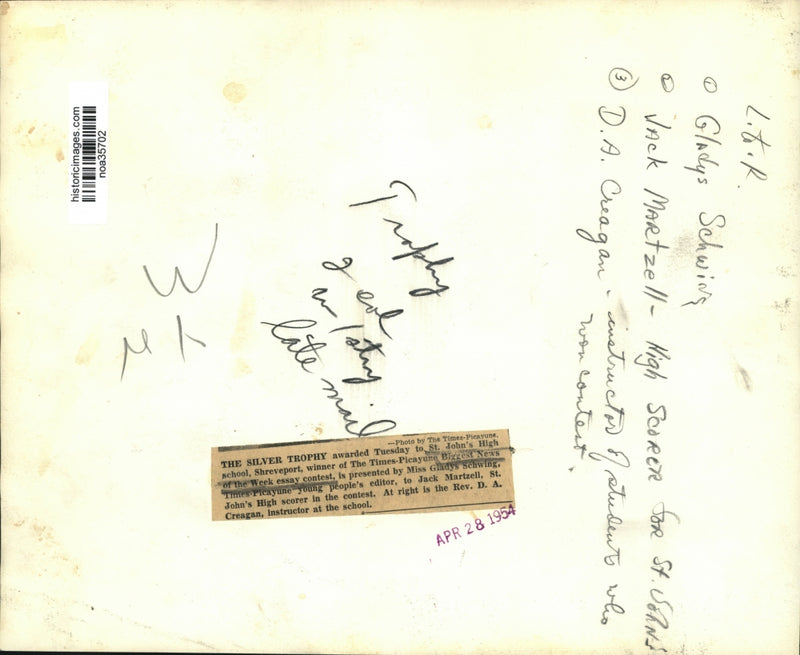 L. to R.
① Gladys Schwing
② JACK MARTZELL - High SCORER for St. JOHNS
③ D. A. Creagan - instructor of students who
won contest.
historicimages.com
noa35702
Trophy
2 col
w/stry
late mail
3 1/2
—Photo by The Times-Picayune.
THE SILVER TROPHY awarded Tuesday to St. John's High
school, Shreveport, winner of The Times-Picayune Biggest News
of the Week essay contest, is presented by Miss Gladys Schwing,
Times-Picayune young people's editor, to Jack Martzell, St.
John's High scorer in the contest. At right is the Rev. D. A.
Creagan, instructor at the school.
APR 28 1954